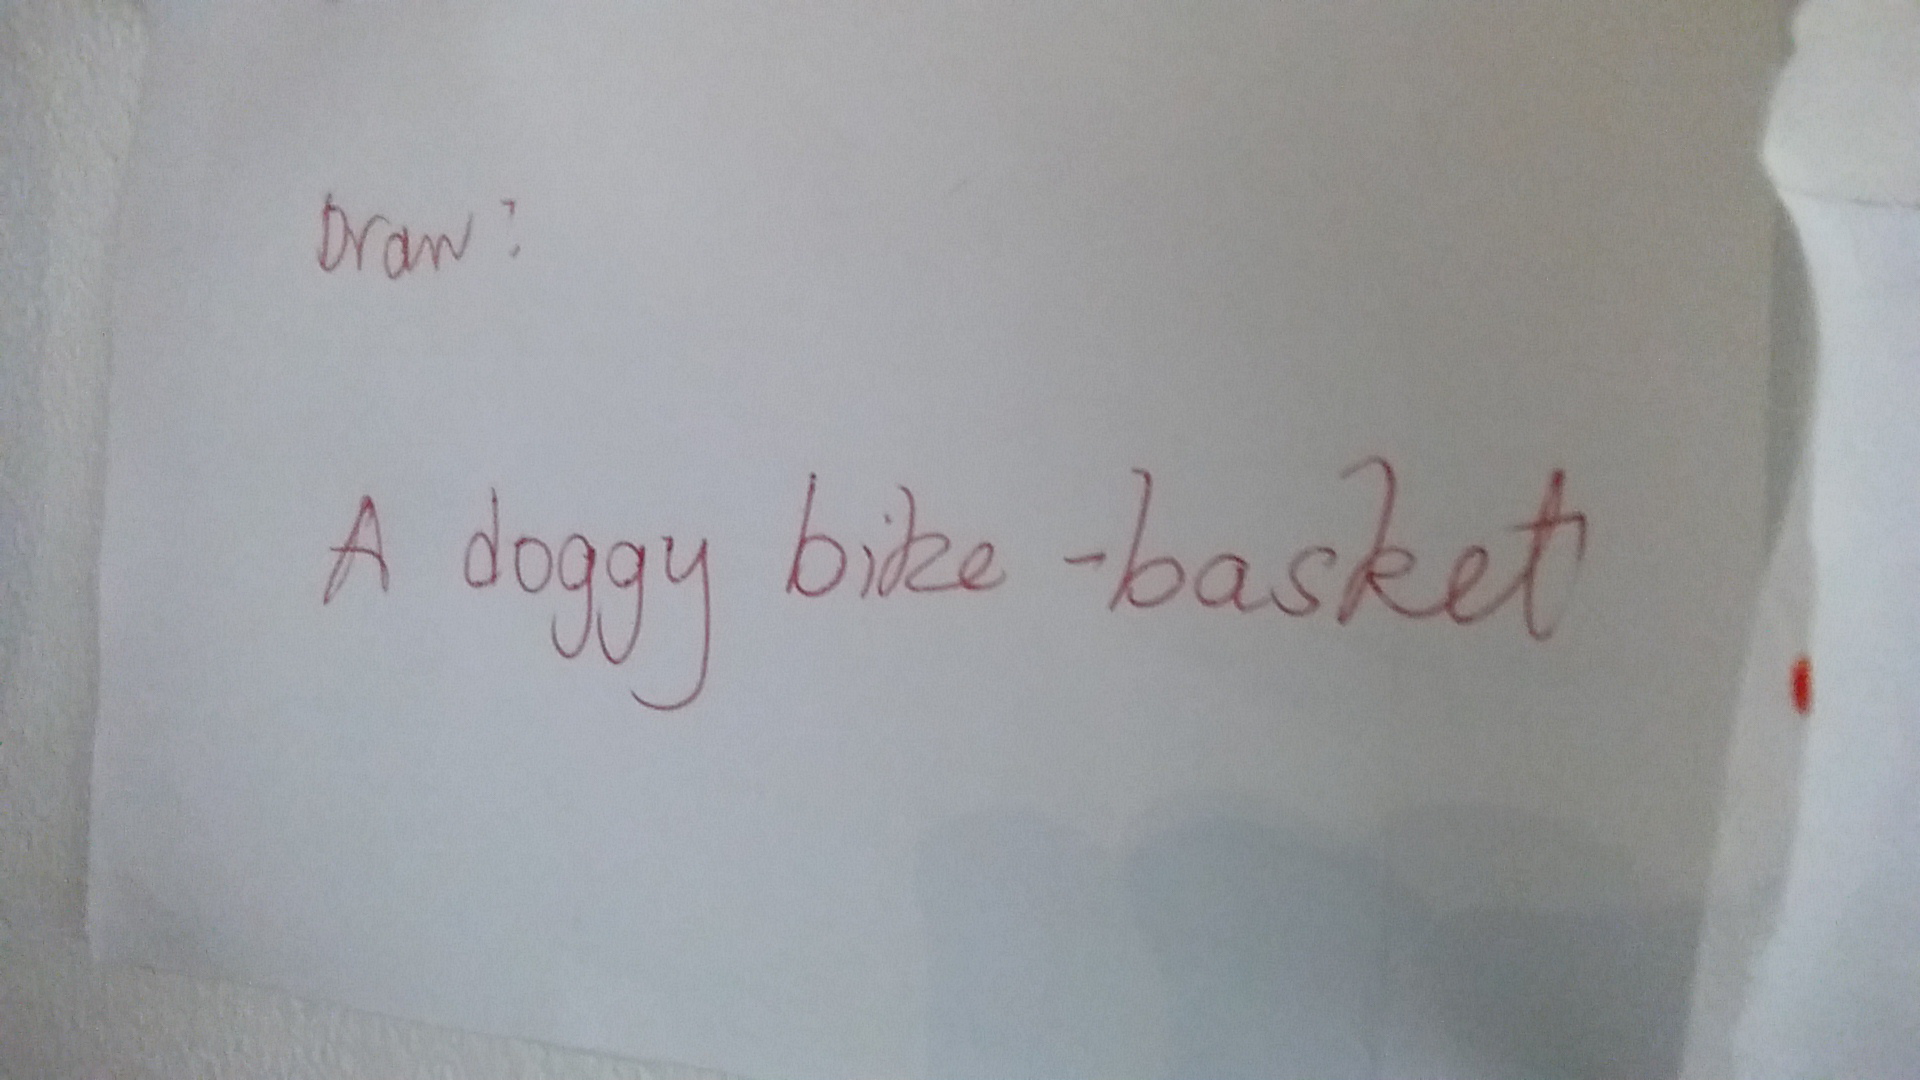 Draw:
A doggy bike-basket